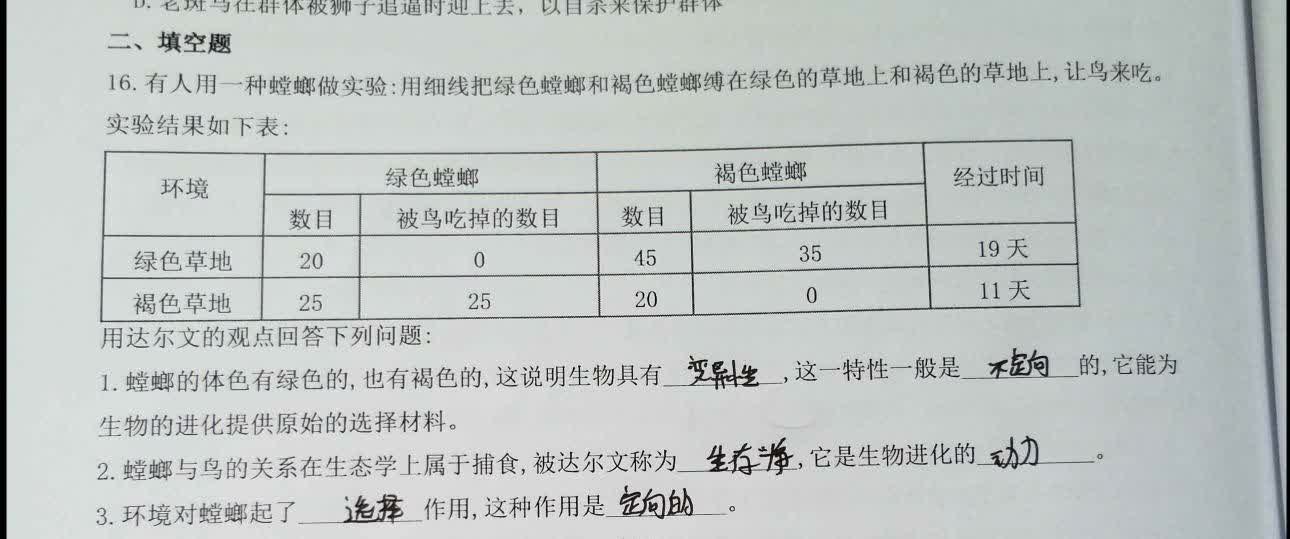 D. 老斑马在群体被狮子追逼时迎上去，以自杀来保护群体
二、填空题
16. 有人用一种螳螂做实验:用细线把绿色螳螂和褐色螳螂缚在绿色的草地上和褐色的草地上,让鸟来吃。
实验结果如下表:
环境 绿色螳螂 褐色螳螂 经过时间
数目 被鸟吃掉的数目 数目 被鸟吃掉的数目
绿色草地 20 0 45 35 19 天
褐色草地 25 25 20 0 11 天
用达尔文的观点回答下列问题:
1. 螳螂的体色有绿色的,也有褐色的,这说明生物具有 变异性 ,这一特性一般是 不定向 的,它能为
生物的进化提供原始的选择材料。
2. 螳螂与鸟的关系在生态学上属于捕食,被达尔文称为 生存斗争 ,它是生物进化的 动力 。
3. 环境对螳螂起了 选择 作用,这种作用是 定向的 。